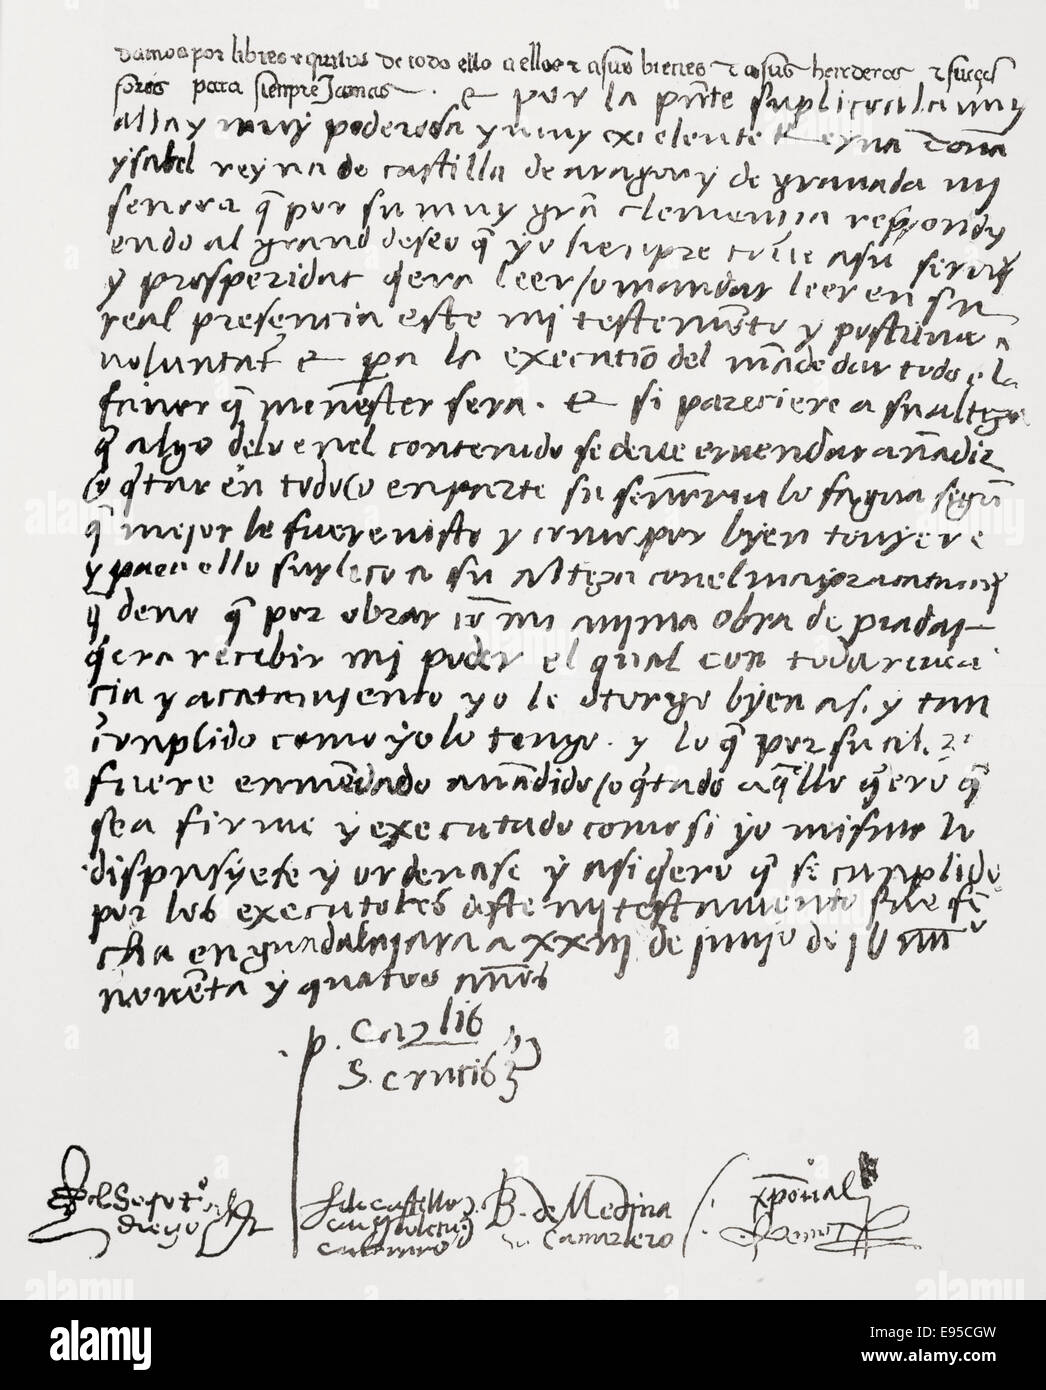 damos por libres e quitos de todo ello a ellos e a sus bienes e a sus herederos e suçes
sores para siempre Jamas. e por la pnte suplico a la muy
alta y muy poderosa y muy excelente Reyna doña
ysabel reyna de castilla de aragon y de granada mi
señora q por su muy gra clemencia respondy
endo al grand deseo q yo siempre tuue a su seruiº
y prosperidat qera leer / o mandar leer en su
real presencia este mi testamento y postrimera
voluntat e pa la execucio del made dar todo el
fauor q menester sera. e si pareciere a su alteza
q algo delo enel contenido se deue emendar añadir
/o qtar en todo /o en parte su señoria lo faga segu
q mejor le fuere visto y como por byen touyere
y para ello suplico a su alteza con el mayor acatamiº
q deuo q por obrar co mi anima obra de piadat
qera recebir mi poder el qual con toda reueren
cia y acatamyento yo le otorgo byen asi y tan
conplido como yo lo tengo. y lo q por su al. a
fuere enmendado añadido /o qtado aqllo qero q
sea firme y executado como si yo mismo lo
dispusyese y ordenase y asi qero q se cunplido
por los executores deste mi testamento fue fe
cha en guadalajara a xxiij de junyo de jU
nouenta y quatro años
p. Carlis
S. crucis
diego
B. de Medina
Camarero
alamy
Image ID: E95CGW
www.alamy.com